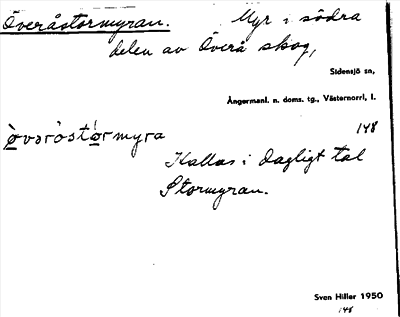 Överåstormyran. Myr i södra
delen av Överå skog,
Sidensjö sn,
Ångermanl. n. doms. tg., Västernorrl. l.
148
Kallas i dagligt tal
Stormyran.
Sven Hiller 1950
148